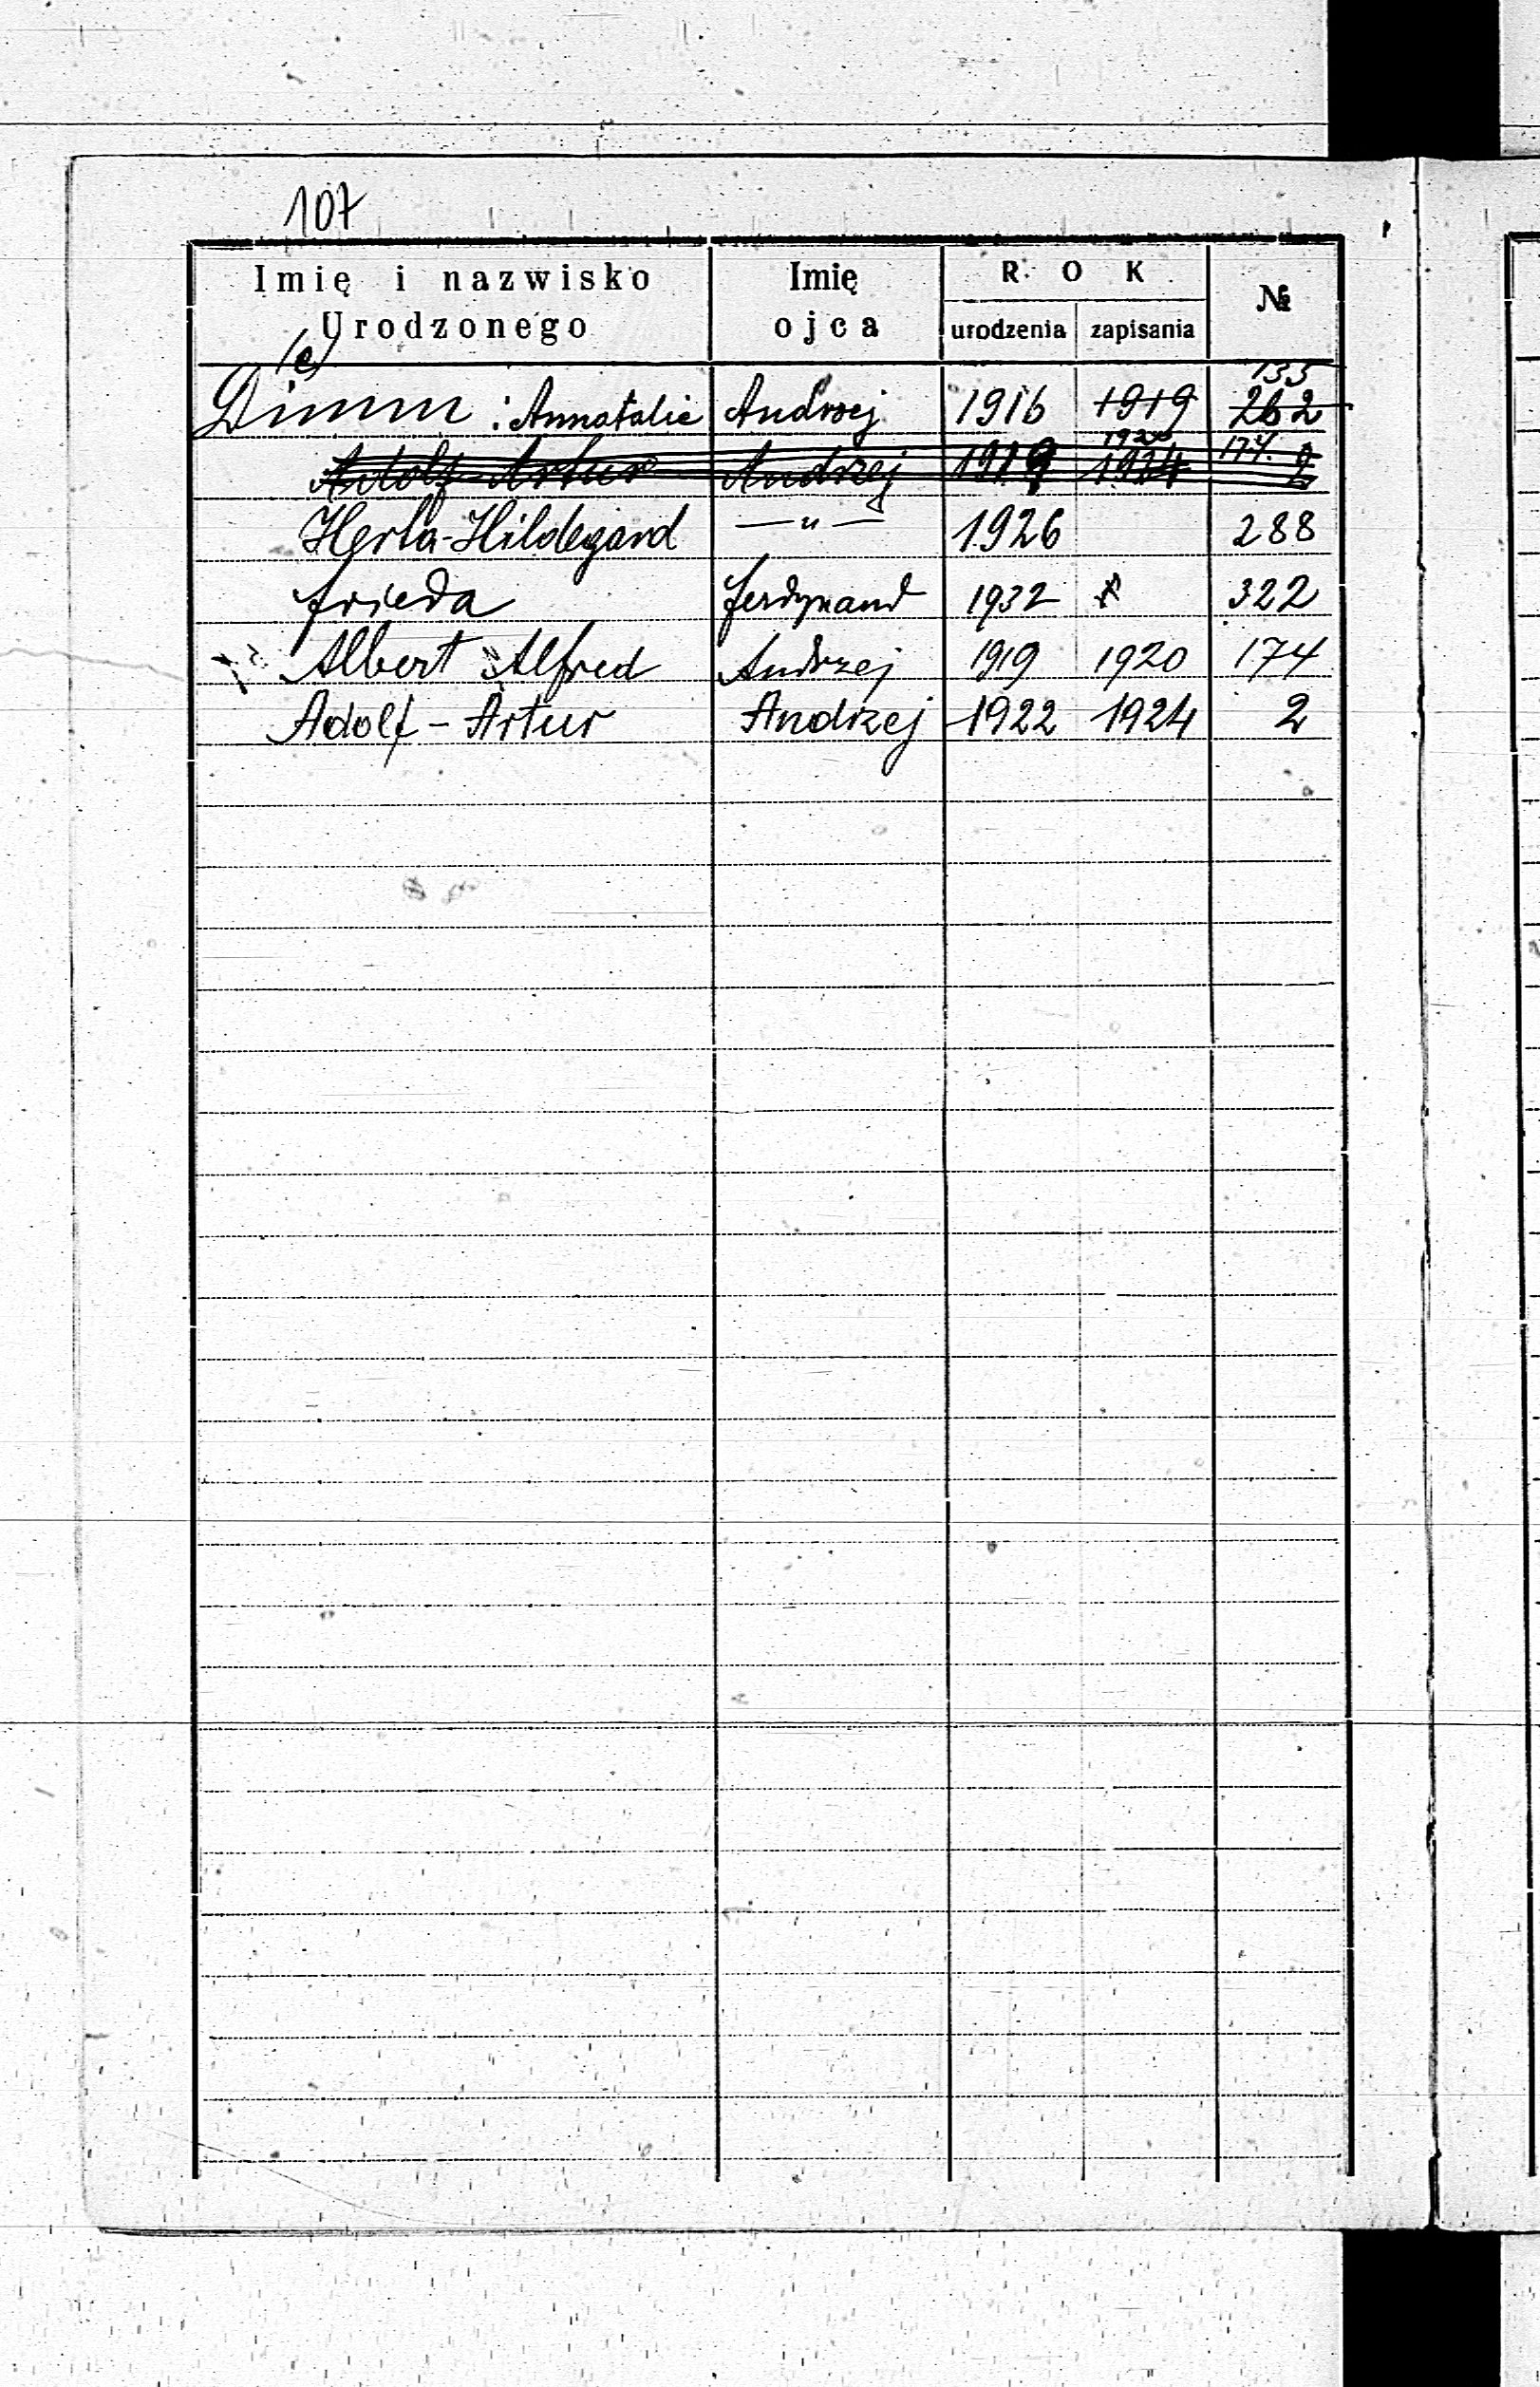 107
Imię i nazwisko Urodzonego Imię ojca ROK urodzenia zapisania №
(e)
133
Dimm : Annatalie Andrzej 1916 1919 262
1920 174.
Adolf-Artur Andrzej 1919 1924 2
Herta-Hildegard —〃— 1926 288
Frieda Ferdynand 1932 322
Albert Alfred Andrzej 1919 1920 174
Adolf - Artur Andrzej 1922 1924 2